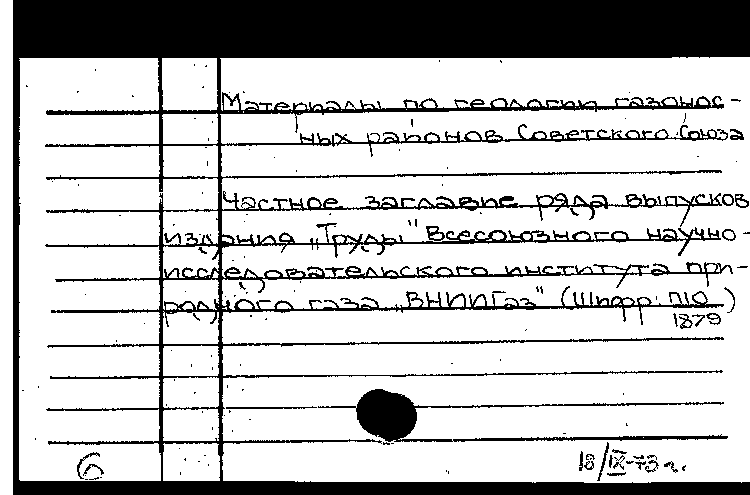 Материалы по геологии газонос-
ных районов Советского Союза
Частное заглавие ряда выпусков
издания „Труды" Всесоюзного научно-
исследовательского института при-
родного газа „ВНИИГаз" (Шифр П10
1879)
6
18/IX-73 г.